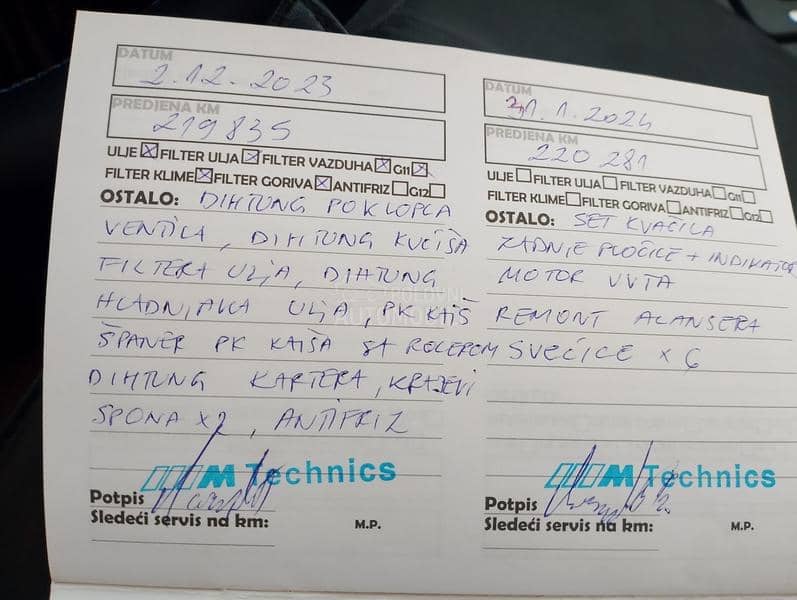 DATUM
2.12.2023
PREDJENA KM
219835
ULJE FILTER ULJA FILTER VAZDUHA G11
FILTER KLIME FILTER GORIVA ANTIFRIZ G12
OSTALO: DIHTUNG POKLOPCA
VENTILA, DIHTUNG KUĆIŠA
FILTERA ULJA, DIHTUNG
HLADNJAKA ULJA, PK KAIŠ
ŠPANER PK KAIŠA SA ROLEROM
DIHTUNG KARTERA, KRAJEVI
SPONA x2, ANTIFRIZ
M Technics
Potpis
Sledeći servis na km:
M.P.
DATUM
31.1.2024
PREDJENA KM
220281
ULJE FILTER ULJA FILTER VAZDUHA G11
FILTER KLIME FILTER GORIVA ANTIFRIZ G12
OSTALO: SET KVAČILA
ZADNJE PLOČICE + INDIKATOR
MOTOR VVTA
REMONT ALANSERA
SVEĆICE x 6
M Technics
Potpis
Sledeći servis na km:
M.P.